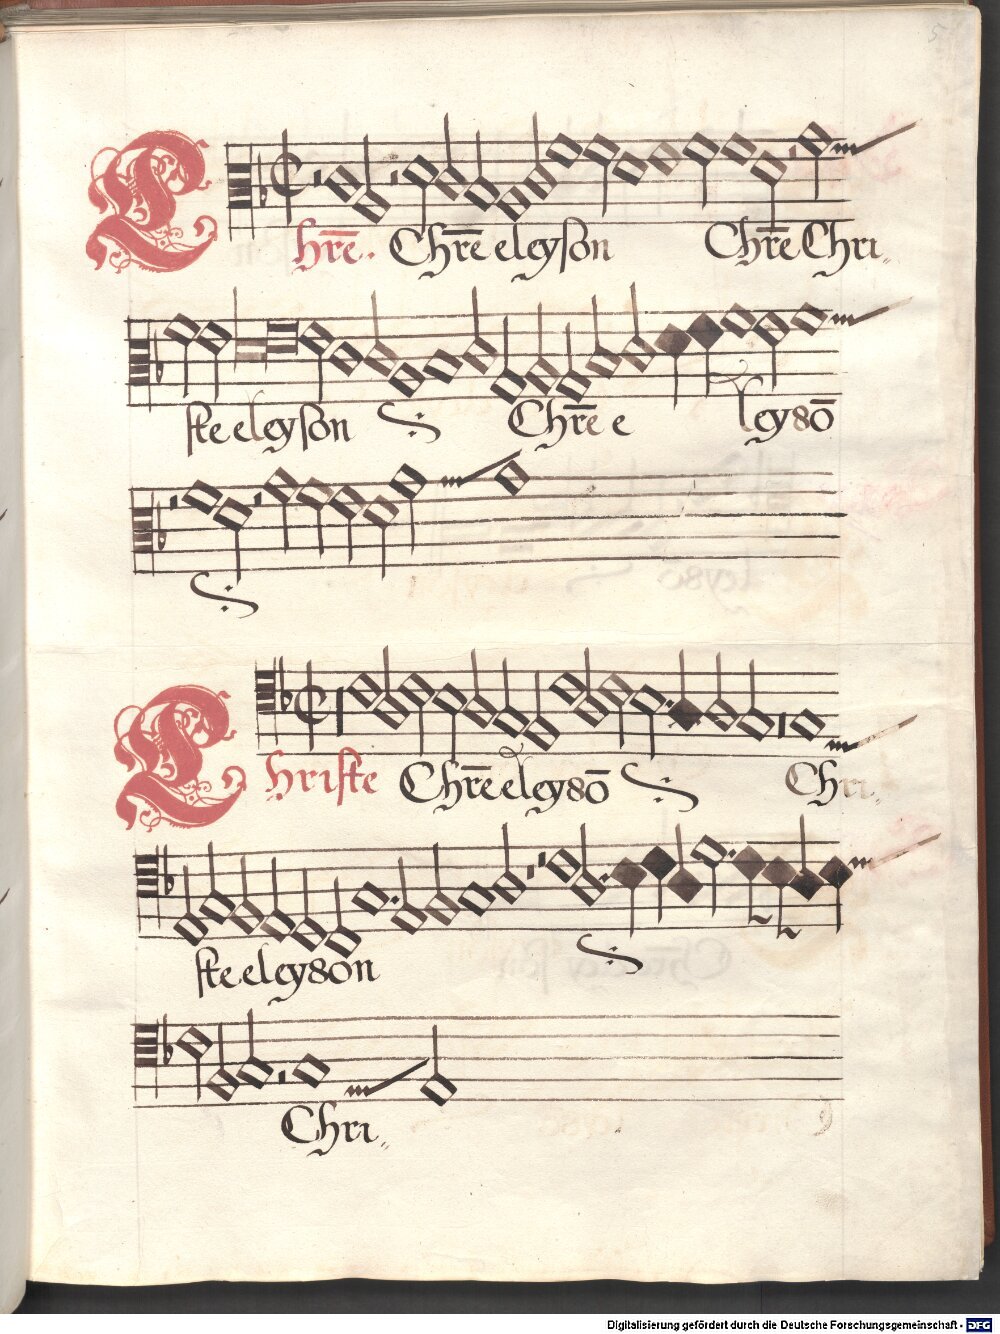 5
Chr̄e. Chr̄e eleyson Chr̄e Chri
ste eleyson Chr̄e e leysō
Christe Chr̄e eleysō Chri
ste eleyson
Chri
Digitalisierung gefördert durch die Deutsche Forschungsgemeinschaft - DFG